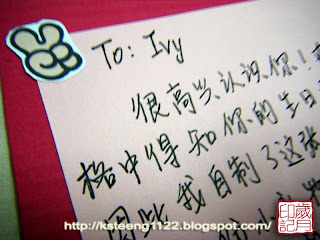 To: Ivy
很高兴认识你！
格中得知你的生日
因此我自制了这张
http://ksteeng1122.blogspot.com/
歲月印記